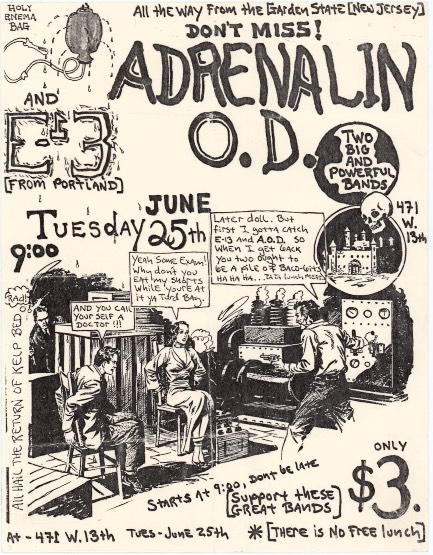 HOLY
ENEMA
BAG
All the Way From the Garden State [New Jersey]
DON'T MISS!
ADRENALIN
O.D.
AND
E-13
[FROM PORTLAND]
TWO
BIG
AND
POWERFUL
BANDS
JUNE
TUESDAY 25th
9:00
471
W.
13th
Later doll. But
first I gotta catch
E-13 and A.O.D. so
when I get back
you two ought to
be a pile of BACO-Bits
HA HA HA...
Yeah Some Exam!
Why don't you
Eat my Shorts
While you're At
it ya Turd Bag.
AND YOU CALL
YOUR SELF A
DOCTOR!!!
Rad!!
ALL HAIL THE RETURN OF KELP BED
STARTS At 9:00, DON'T BE LATE
[Support these
GREAT BANDS]
ONLY
$3.
At - 471 W. 13th TUES - June 25th * [There is No Free lunch]